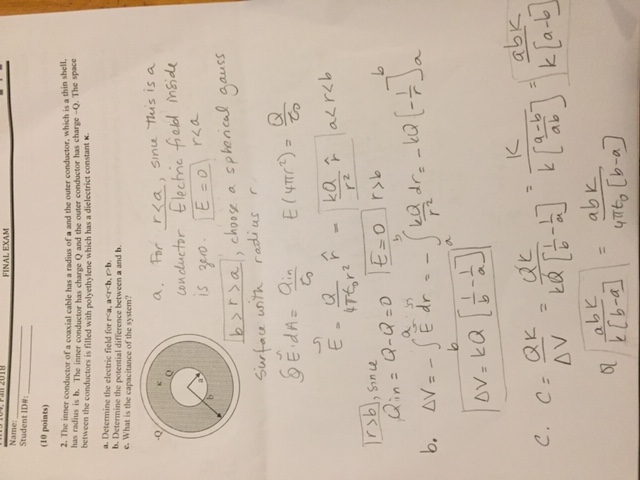 PHYS 104, Fall 2018
FINAL EXAM
Name:
Student ID#:
(10 points)
2. The inner conductor of a coaxial cable has a radius of a and the outer conductor, which is a thin shell,
has radius is b. The inner conductor has charge Q and the outer conductor has charge –Q. The space
between the conductors is filled with polyethylene which has a dielectrict constant κ.
a. Determine the electric field for r<a, a<r<b, r>b.
b. Determine the potential difference between a and b.
c. What is the capacitance of the system?
-Q
κ
Q
a
b
a. For r<a, since this is a
conductor Electric field inside
is zero. E = 0 r<a
b > r > a, choose a spherical gauss
surface with radius r
∮ E·dA = Qin/ε0 E(4πr²) = Q/ε0
E = Q/4πε0r² r̂ = kQ/r² r̂ a<r<b
r>b, since
Qin = Q-Q = 0 E=0 r>b
b. ΔV = - ∫_b^a E dr = - ∫_a^b kQ/r² dr = - kQ [-1/r]_a^b
ΔV = kQ [1/b - 1/a]
C. C = QK/ΔV = QK/kQ[1/b - 1/a] = K/k[a-b/ab] = abK/k[a-b]
or abK/k[b-a] = abK/4πε0[b-a]